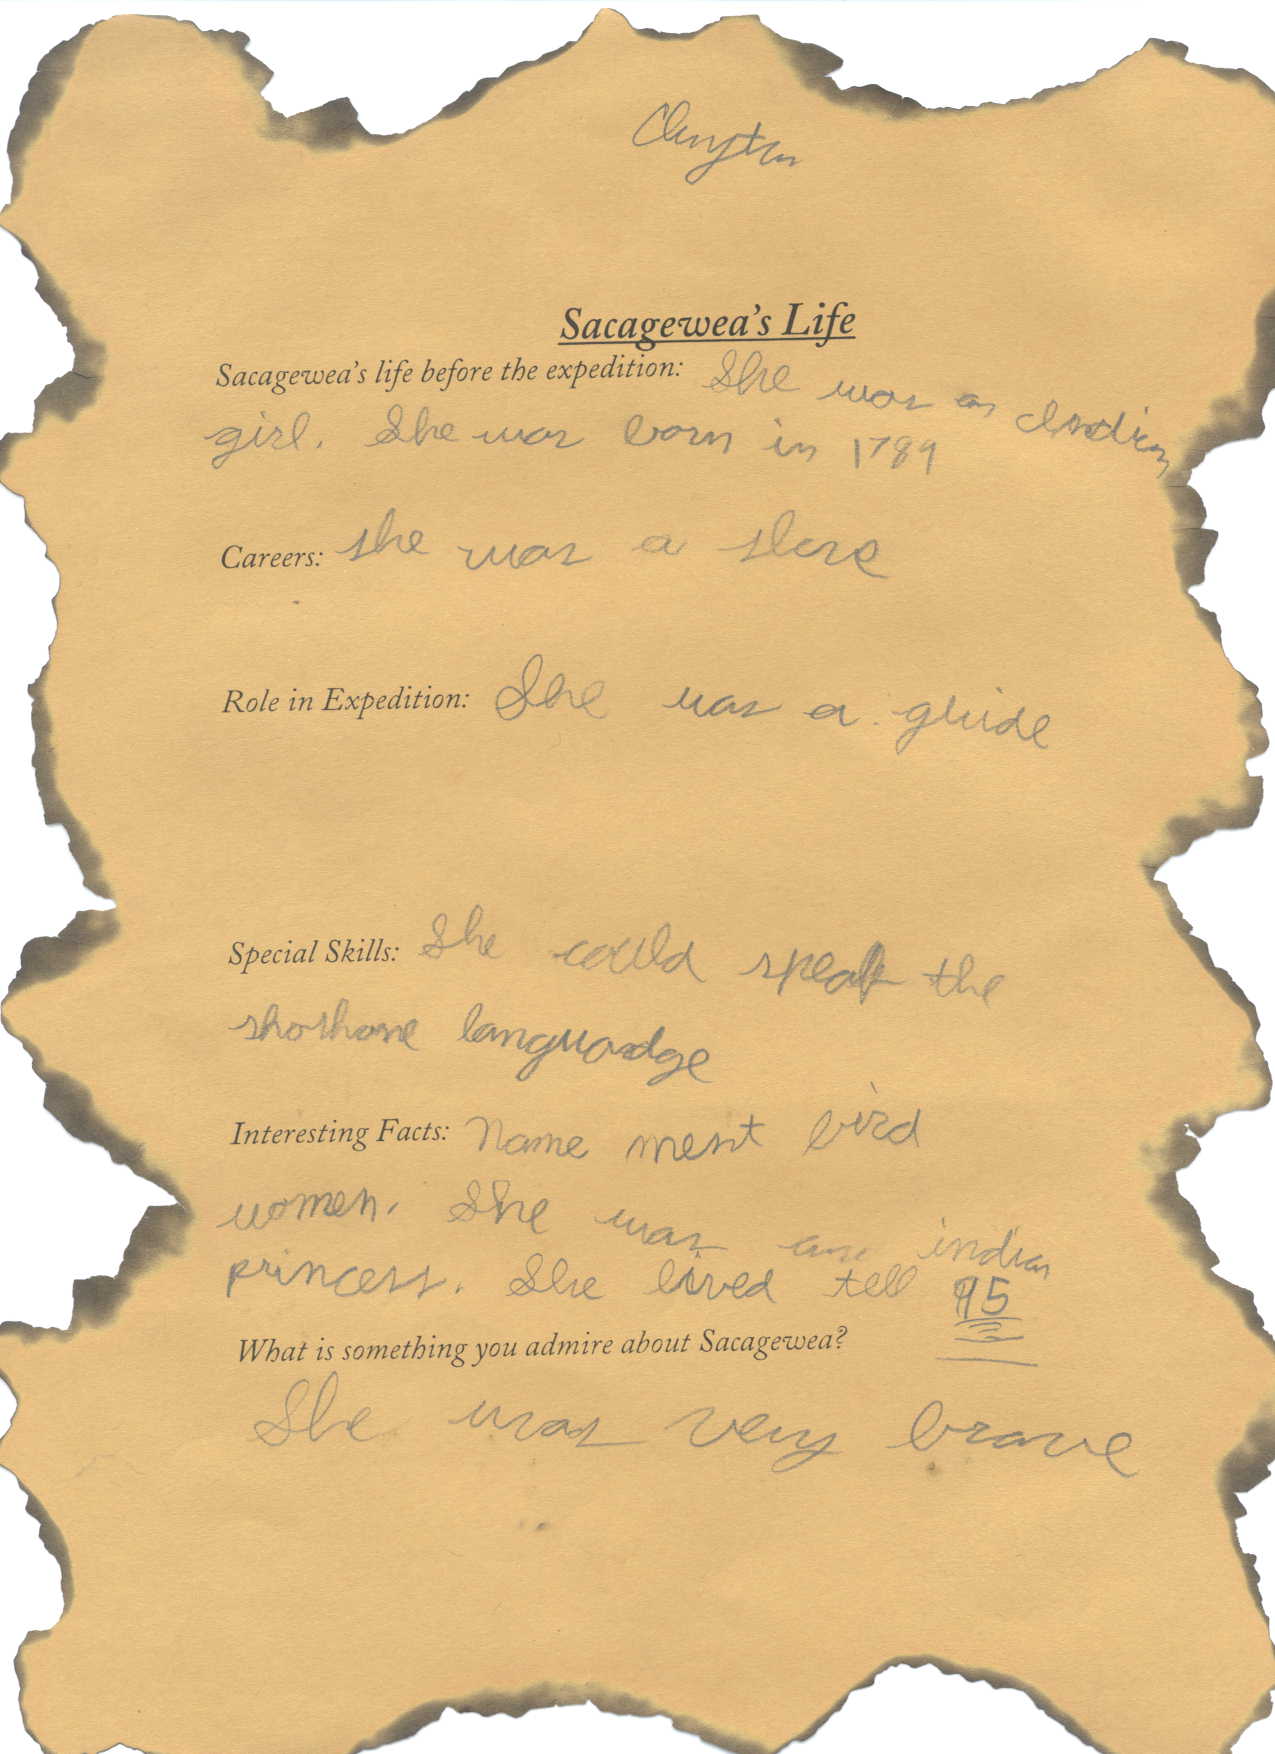 Clayton
Sacagewea's Life
Sacagewea's life before the expedition: She was an Indian
girl. She was born in 1789
Careers: she was a slave
Role in Expedition: She was a guide
Special Skills: She could speak the
shoshone languadge
Interesting Facts: Name ment bird
women. She was an indian
princess. She lived tell 95
What is something you admire about Sacagewea?
She was very brave